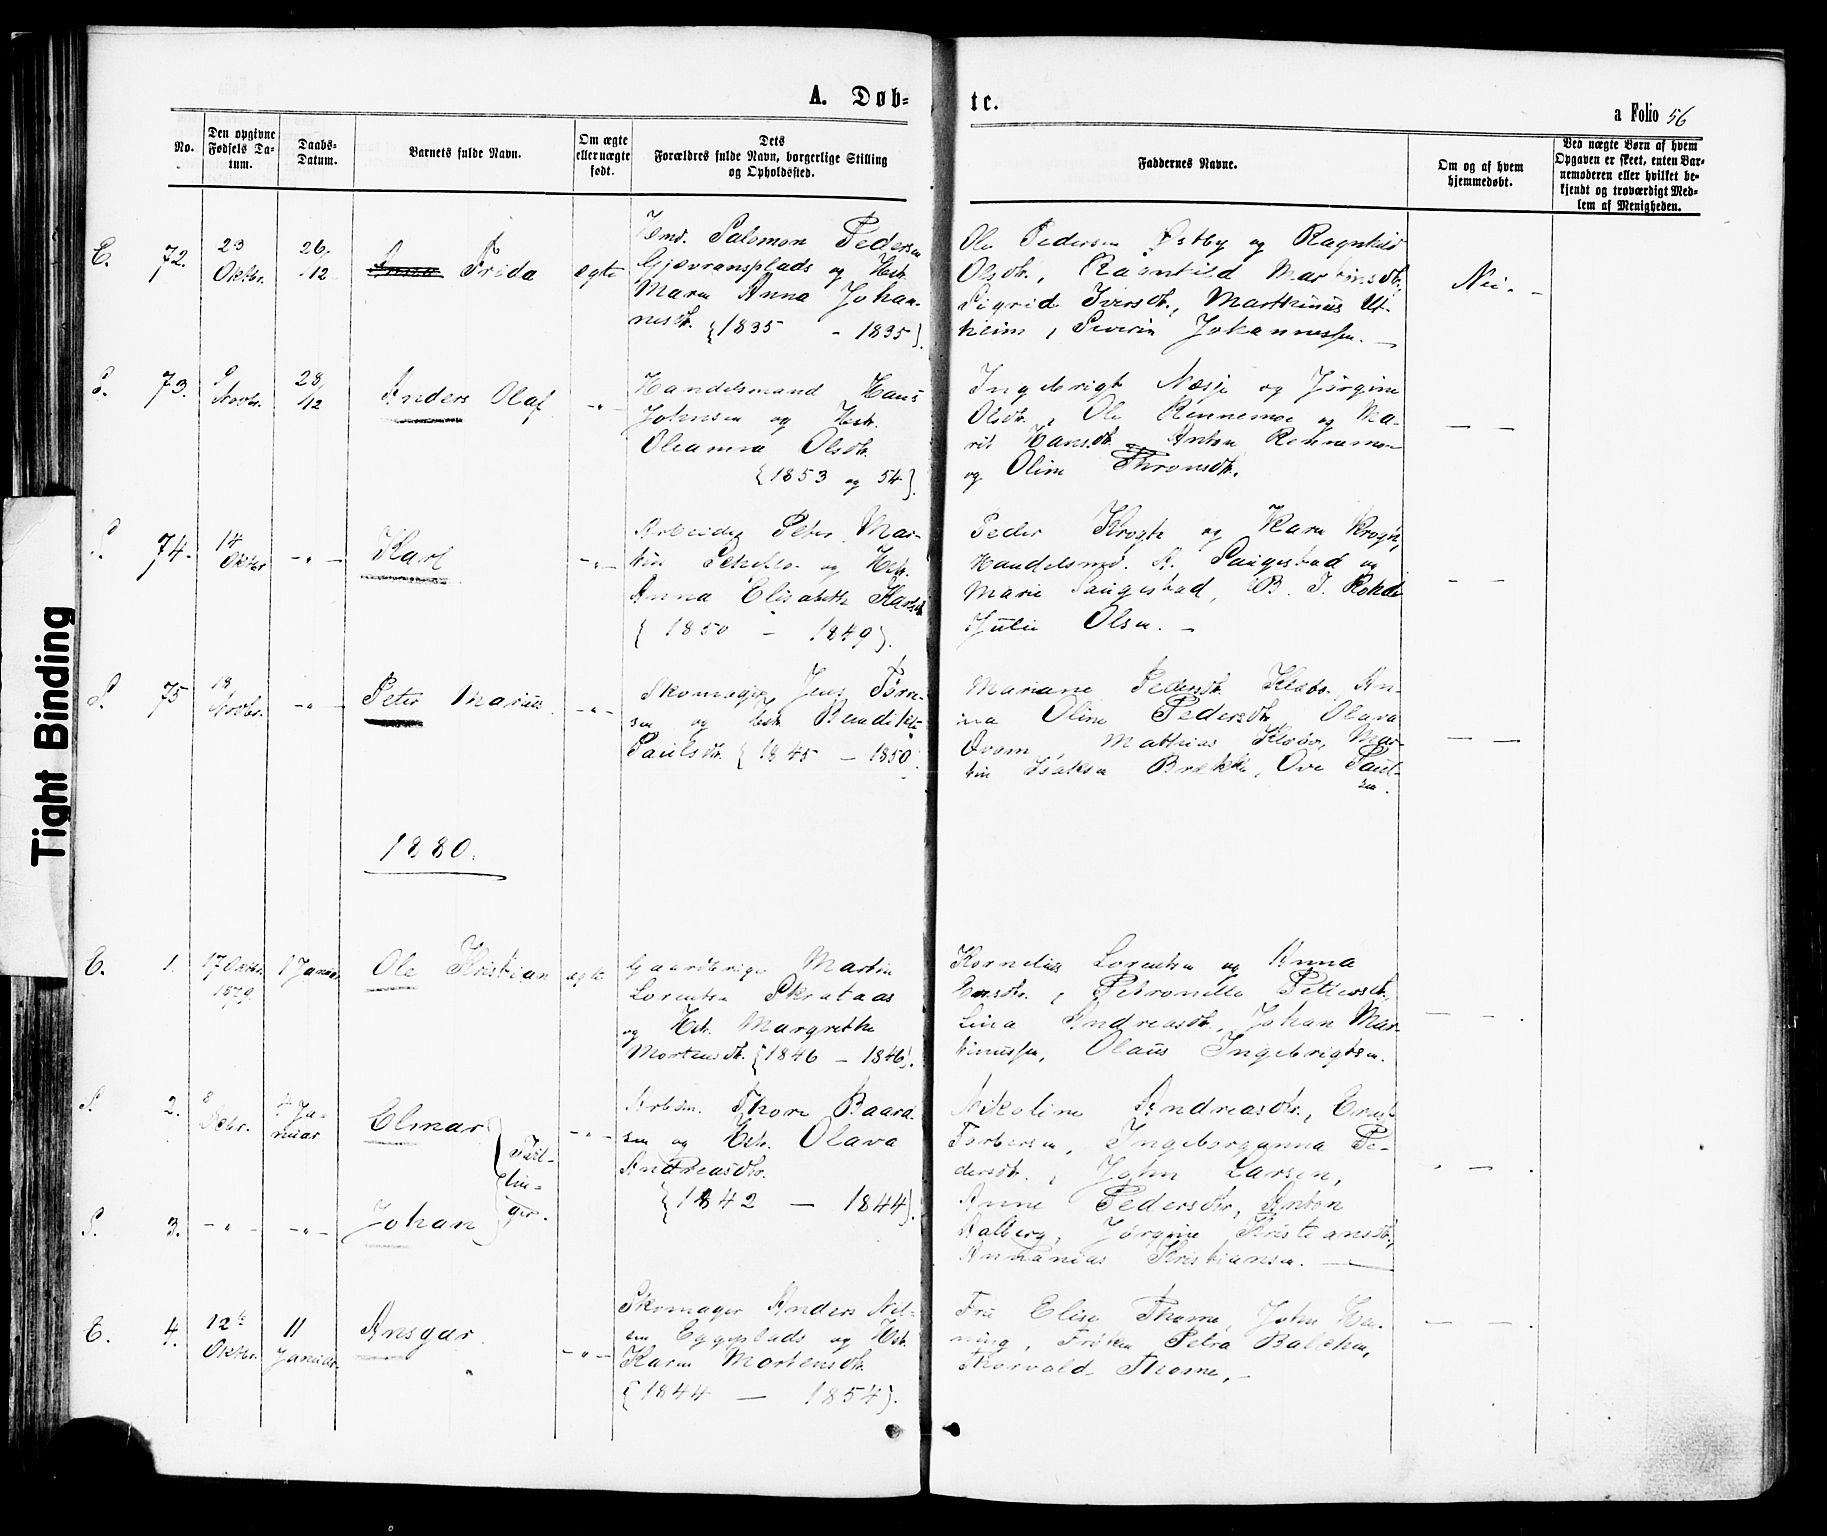 A. Døb=
te.
a Folio 56
No.
Den opgivne Fødsels Da-tum.
Daabs-Datum.
Barnets fulde Navn.
Om ægte eller uægte født.
Dets Forældres fulde Navn, borgerlige Stilling og Opholdssted.
Faddernes Navne.
Om og af hvem hjemmedøbt.
Ved uægte Børn af hvem Opgaven er skeet, enten Bar-nemoderen eller hvilket be-kjendt og troværdigt Med-lem af Menigheden.
E. 72.
23 Oktbr.
26/12
Anna Frida
ægte
Salomon Pedersen
Gjævranplads og Hstr.
Maren Anna Johan-
nesdtr. {1835 - 1835}.
Ole Pedersen Østby og Ragnhild
Olsdtr., Ragnhild Martinsdtr,
Sigrid Iversdtr., Marthinus Ut-
heim, Severin Johannessen. —
Nei. -
S. 73.
9 Novbr.
28/12
Anders Olaf
-"-
Handelsmand Hans
Johnsen og Hstr.
Oleanna Olsdtr.
{1853 og 54}.
Ingebrigt Næsje og Jørgine
Olsdtr., Ole Rennemoe og Ma-
rit Hansdtr. Anton Rennemoe
og Oline Thronsdtr.
— —
S. 74.
14 Oktbr
-"-
Karl
-"-
Arbeider Peter Mar-
tin og Hstr.
Anna Elisabeth Karlsdtr
{1850 - 1849}.
Peder Krogh og Karen Krogh,
Handelsmd. A. Saugestad og
Marie Saugestad, B. J. Rohde
Julie Olsen. -
— —
S. 75
18 Novbr.
-"-
Peter Marius
-"-
Skomager Jens Torre-
sen og Hstr. Bendikte
Paulsdtr. {1845 - 1850}
Mariane Pedersdtr. Klæbo, An-
na Oline Pedersdtr, Olava
Kvam, Mathias Klæbo, Mar-
tin Isaksen Brække, Ove Paul-
sen.
— —
1880.
E. 1.
17 Oktbr. 1879.
1 Januar
Ole Kristian
ægte
Gaardbruger Martin
Lorentsen Skrataas
og Hstr. Margrethe
Mortensdtr. {1846 - 1846}.
Kornelius Lorentsen og Anna
Petronelle Pettersdtr.
Lina Andreasdtr., Johan Mar-
tinussen, Olaus Ingebrigtsen.
— — .
S. 2.
8 Debr.
4 Ja-
nuar
Elmar
Tvil-
lin-
ger.
-"-
Arbm. Thore Baard-
sen og Hstr. Olava
Andreasdtr.
{1842 - 1844}.
Nikoline Andreasdtr.,
Torbersen, Ingeborganna Pe-
dersdtr., John Larsen,
Anne Pedersdtr, Anton
Aalberg, Jørgine Kristiansdtr,
Annanias Kristiansen. —
S. 3.
-"-
-"-
Johan
E. 4.
12te Oktbr.
11 Januar.
Ansgar
-"-
Skomager Anders Nil-
sen Eggeplads og Hstr.
Karen Mortensdtr.
{1844 - 1854}.
Fru Elise Thorne, John Hen-
ning, Frøken Petra Balchen,
Thorvald Thorne, -
— — .
Tight Binding